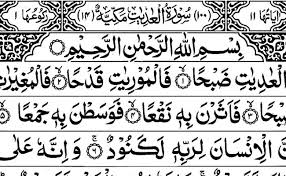 اٰيَاتُهَا ١١ (١٠٠) سُوْرَةُ الْعٰدِيٰتِ مَكِّيَّةٌ (١٤) رُكُوْعُهَا ١
بِسْمِ اللّٰهِ الرَّحْمٰنِ الرَّحِيْمِ
الْعٰدِيٰتِ ضَبْحًا ۙ﴿١﴾ فَالْمُوْرِيٰتِ قَدْحًا ۙ﴿٢﴾ فَالْمُغِيْرٰتِ
صُبْحًا ۙ﴿٣﴾ فَاَثَرْنَ بِهٖ نَقْعًا ۙ﴿٤﴾ فَوَسَطْنَ بِهٖ جَمْعًا ۙ﴿٥﴾
نَّ الْاِنْسَانَ لِرَبِّهٖ لَكَنُوْدٌ ۚ﴿٦﴾ وَ اِنَّهٗ عَلٰى